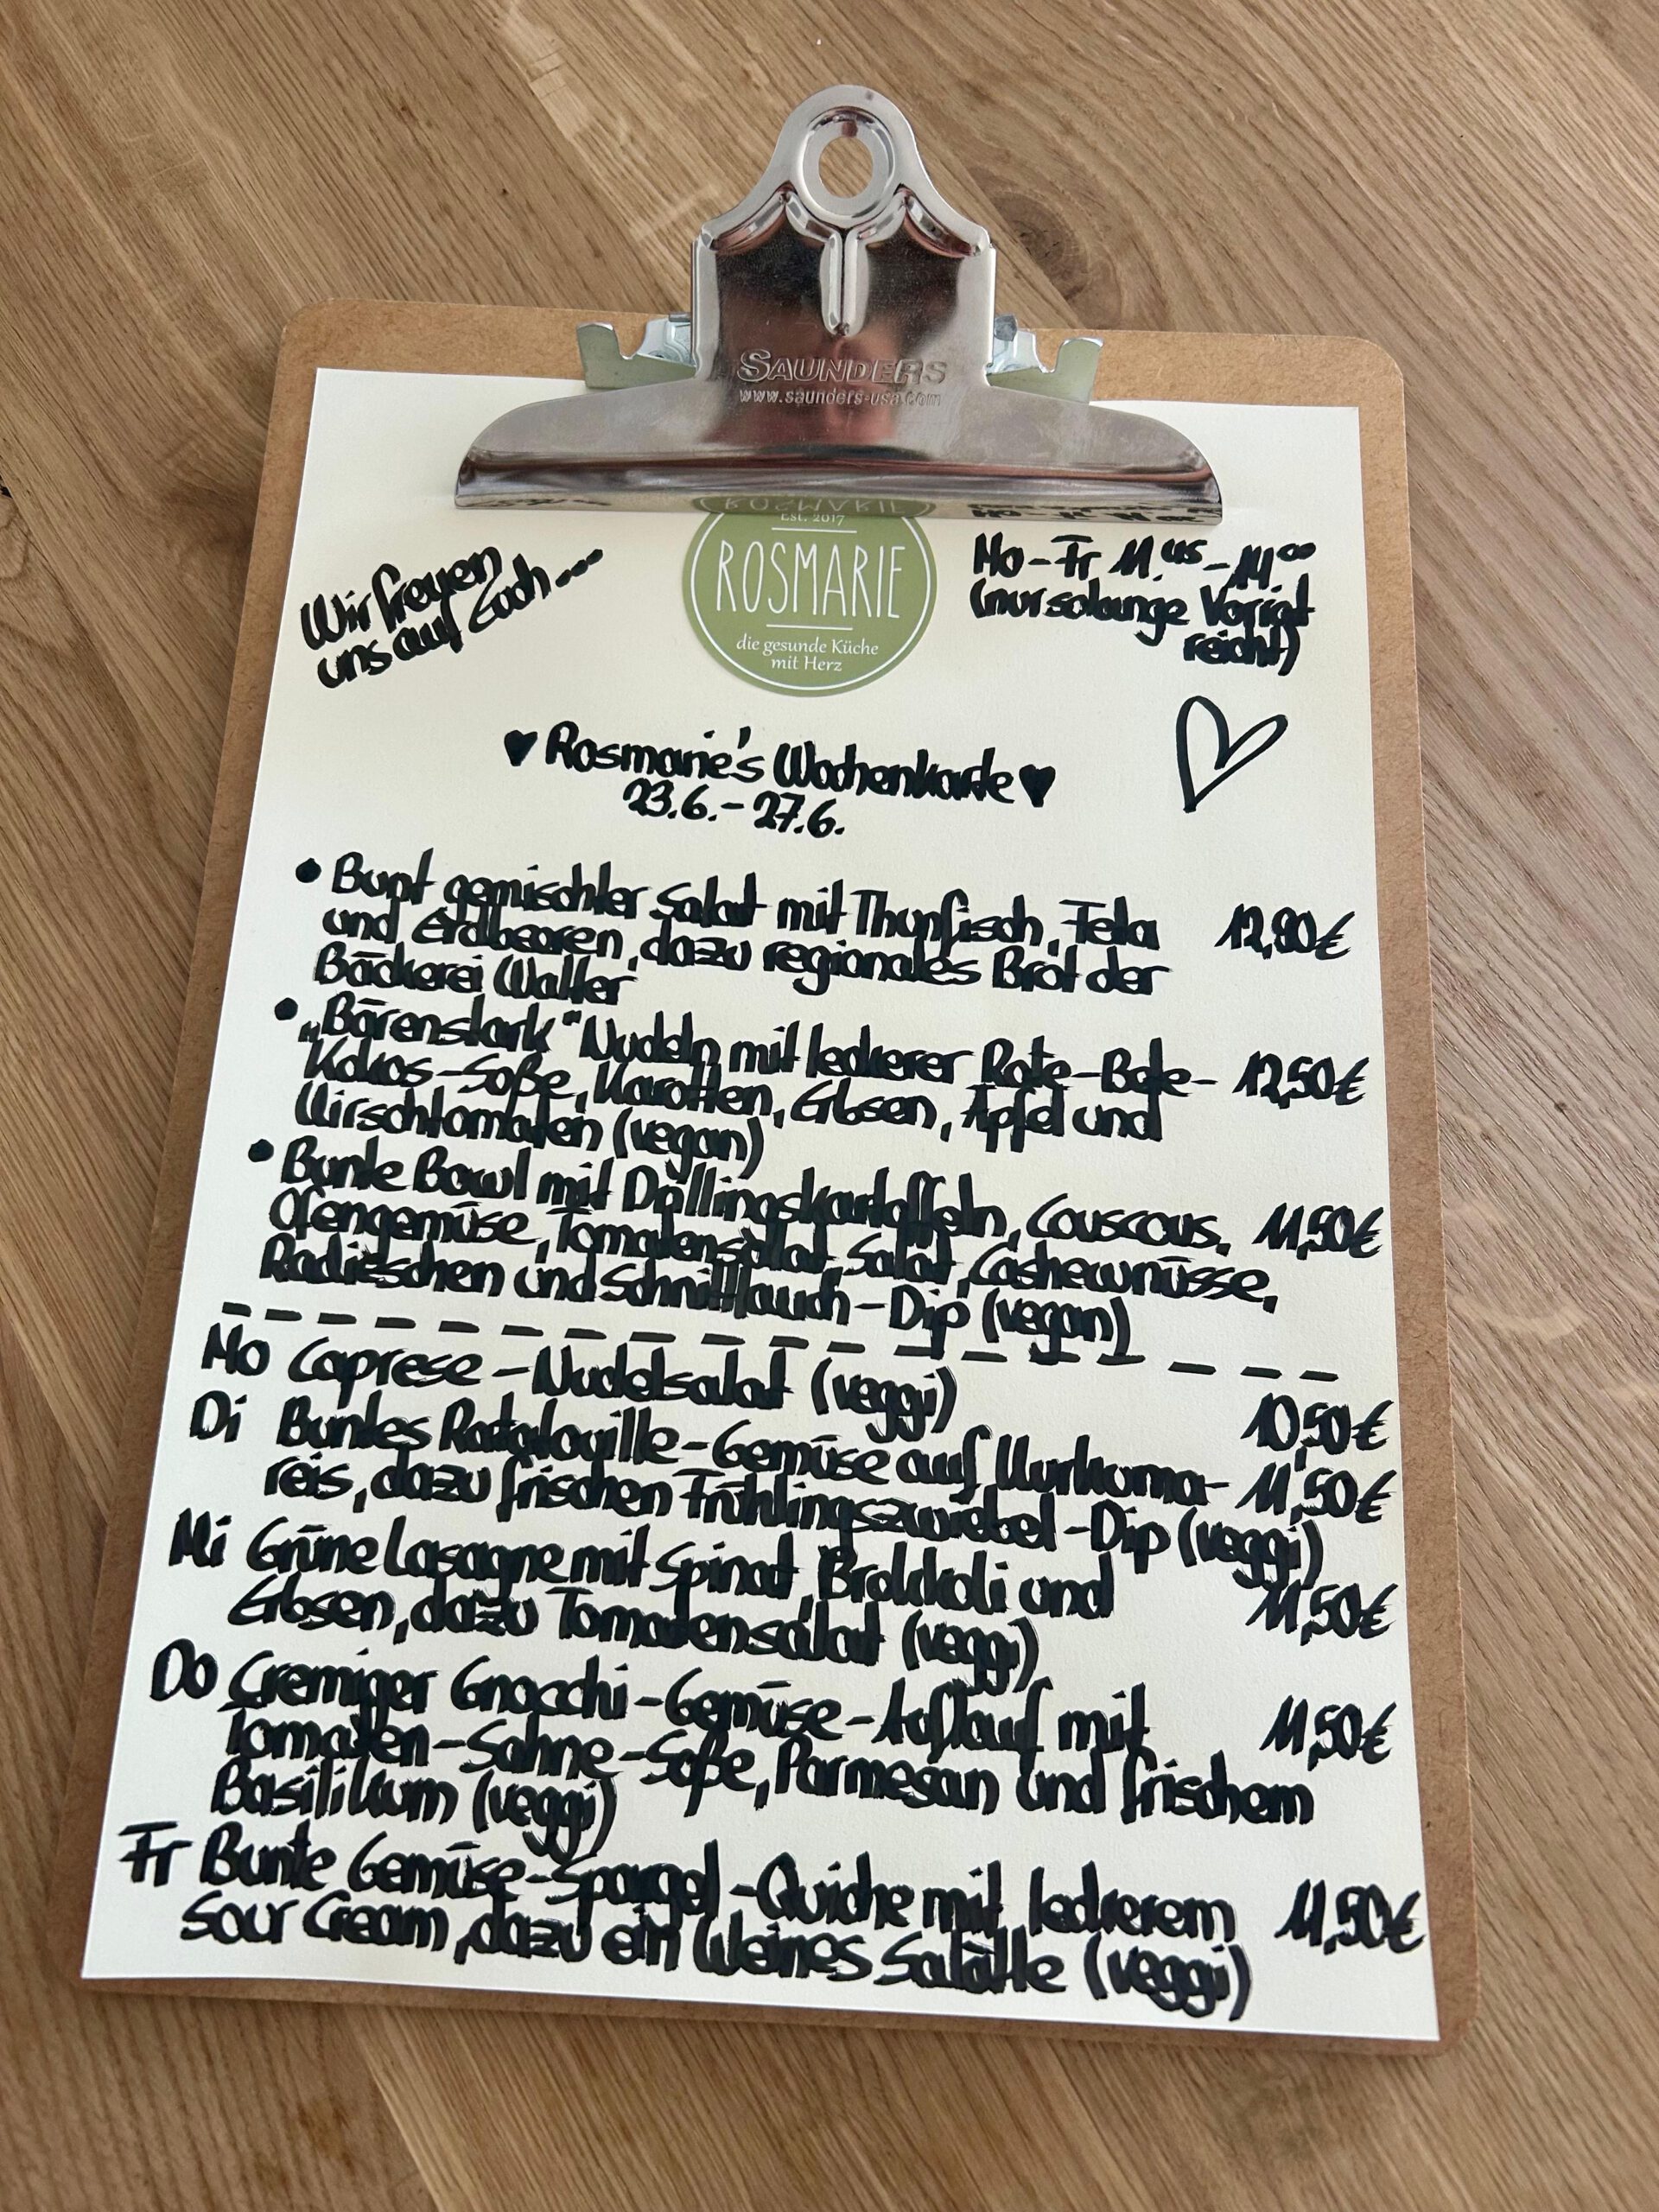 SAUNDERS
www.saunders-usa.com
Wir freuen
uns auf Euch...
EST. 2017
ROSMARIE
die gesunde Küche
mit Herz
Mo-Fr 11.45-14 00
(nur solange Vorrat
reicht)
♥ Rosmarie's Wochenkarte ♥
23.6.-27.6.
• Bunt gemischter Salat mit Thunfisch, Feta 12,90€
und Erdbeeren, dazu regionales Brot der
Bäckerei Walter
• „Bärenstark“ Nudeln mit leckerer Rote-Bete- 12,50€
Kokos-Soße, Karotten, Erbsen, Apfel und
Kirschtomaten (vegan)
• Bunte Bowl mit Drillingskartoffeln, Couscous, 11,50€
Ofengemüse, Tomatensalat, Salat, Cashewnüsse,
Radieschen und Schnittlauch-Dip (vegan)
Mo Caprese-Nudelsalat (veggi) 10,50€
Di Buntes Ratatouille-Gemüse auf Kurkuma- 11,50€
reis, dazu frischen Frühlingszwiebel-Dip (veggi)
Mi Grüne Lasagne mit Spinat, Brokkoli und 11,50€
Erbsen, dazu Tomatensalat (veggi)
Do Cremiger Gnocchi-Gemüse-Auflauf mit 11,50€
Tomaten-Sahne-Soße, Parmesan und frischem
Basilikum (veggi)
Fr Bunte Gemüse-Spargel-Quiche mit leckerem 11,50€
Sour Cream, dazu ein kleines Salätle (veggi)